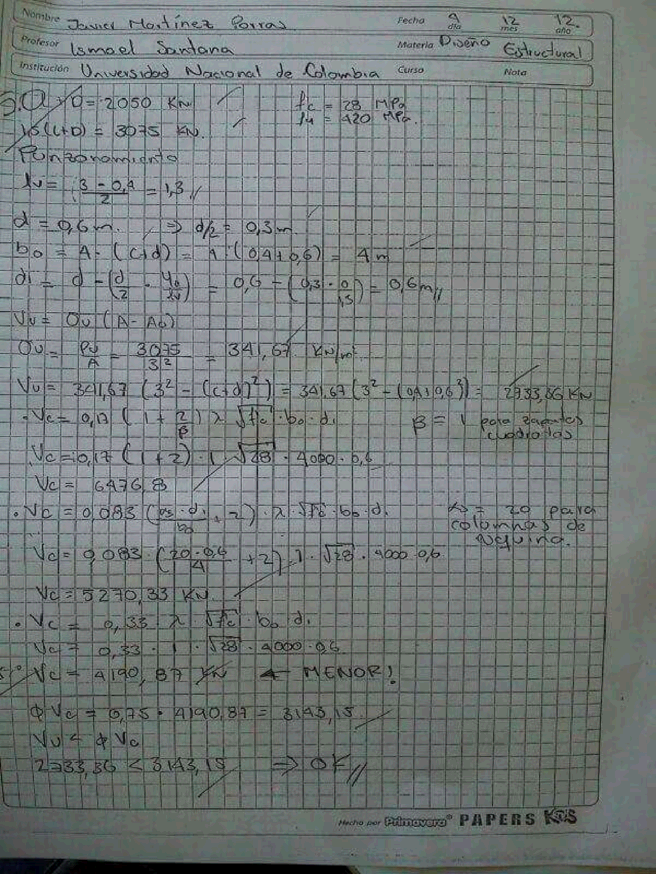 Nombre Javier Martínez Porras Fecha 9 día 12 mes 12. año
Profesor Ismael Santana Materia Diseño Estructural
Institución Universidad Nacional de Colombia Curso Nota
D = 2050 KN f'c = 28 MPa
1,5(L+D) = 3075 KN. fy = 420 MPa.
Punzonamiento
lv = (3 - 0,4)/2 = 1,3 //
d = 0,6 m. ⇒ d/2 = 0,3 m
bo = 4 · (c+d) = 4 · (0,4+0,6) = 4 m
di = d - (d/2 · Yo/lv) = 0,6 - (0,3 · 0/1,3) = 0,6 m //
Vu = σu (A - Ao)
σu = Pu/A = 3075/3² = 341,67 KN/m²
Vu = 341,67 (3² - (c+d)²) = 341,67 (3² - (0,4+0,6)²) = 2733,36 KN
· Vc = 0,17 (1 + 2/β) λ √f'c · bo · di β = 1 para zapatas
cuadradas
Vc = 0,17 (1+2) · 1 · √28 · 4000 · 0,6
Vc = 6476,8
· Vc = 0,083 (αs · di/bo + 2) · λ · √f'c · bo · di αs = 20 para
columnas de
esquina.
Vc = 0,083 · (20 · 0,6/4 + 2) · 1 · √28 · 4000 · 0,6
Vc = 5270,33 KN
· Vc = 0,33 λ √f'c · bo di
Vc = 0,33 · 1 · √28 · 4000 · 0,6
Vc = 4190,87 KN ← MENOR!
φVc = 0,75 · 4190,87 = 3143,15
Vu < φVc
2733,36 < 3143,15 ⇒ OK //
Hecho por Primavera® PAPERS KOS